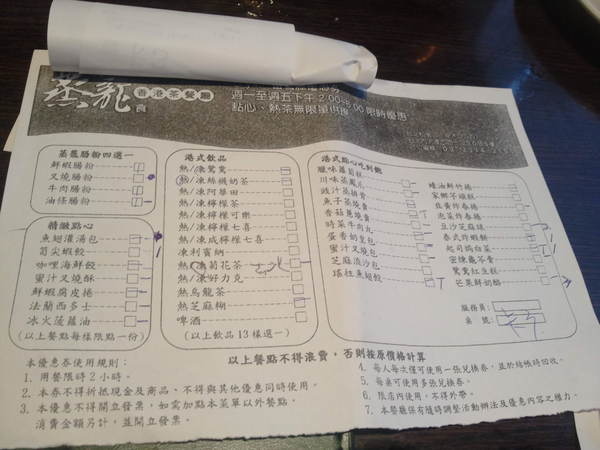 蒸龍
食
香港茶餐廳
週一至週五下午2:00~5:00限時優惠
點心、熱茶無限量供應
蒸籠腸粉四選一
鮮蝦腸粉
叉燒腸粉
牛肉腸粉
油條腸粉
精緻點心
魚翅灌湯包
筍尖蝦餃
咖哩海鮮餃
蜜汁叉燒酥
鮮蝦腐皮捲
法蘭西多士
冰火菠蘿油
(以上餐點每樣限點一份)
港式飲品
熱/凍鴛鴦
熱/凍絲襪奶茶
熱/凍阿華田
熱/凍檸檬茶
熱/凍檸檬可樂
熱/凍檸檬七喜
熱/凍咸檸檬七喜
凍利賓納
熱/凍菊花茶
熱/凍好力克
熱烏龍茶
熱芝麻糊
啤酒
(以上飲品13樣選一)
港式點心吃到飽
臘味蘿蔔糕
川味蒸鳳爪
豉汁蒸排骨
魚子蒸燒賣
香菇蒸燒賣
時菜牛肉丸
蛋香奶皇包
蜜汁叉燒包
芝麻流沙包
塔拉魚翅餃
蠔油鮮竹捲
家鄉芋頭糕
韭黃炸春捲
泡菜炸春捲
豆沙芝麻球
泰式炸蝦餅
起司焗白菜
密鍊龜苓膏
鴛鴦紅豆糕
芒果鮮奶酪
服務員:
桌號:
以上餐點不得浪費,否則按原價格計算
本優惠券使用規則:
1. 用餐限時2小時。
2. 本券不得折抵現金及商品、不得與其他優惠同時使用。
3. 本優惠不得開立發票,如需加點本菜單以外餐點,
消費金額另計,並開立發票。
4. 每人每次僅可使用一張兌換券,並於結帳時回收。
5. 每桌可使用多張兌換券。
6. 限店內使用,不得外帶。
7. 本餐廳保有隨時調整活動辦法及優惠內容之權力。